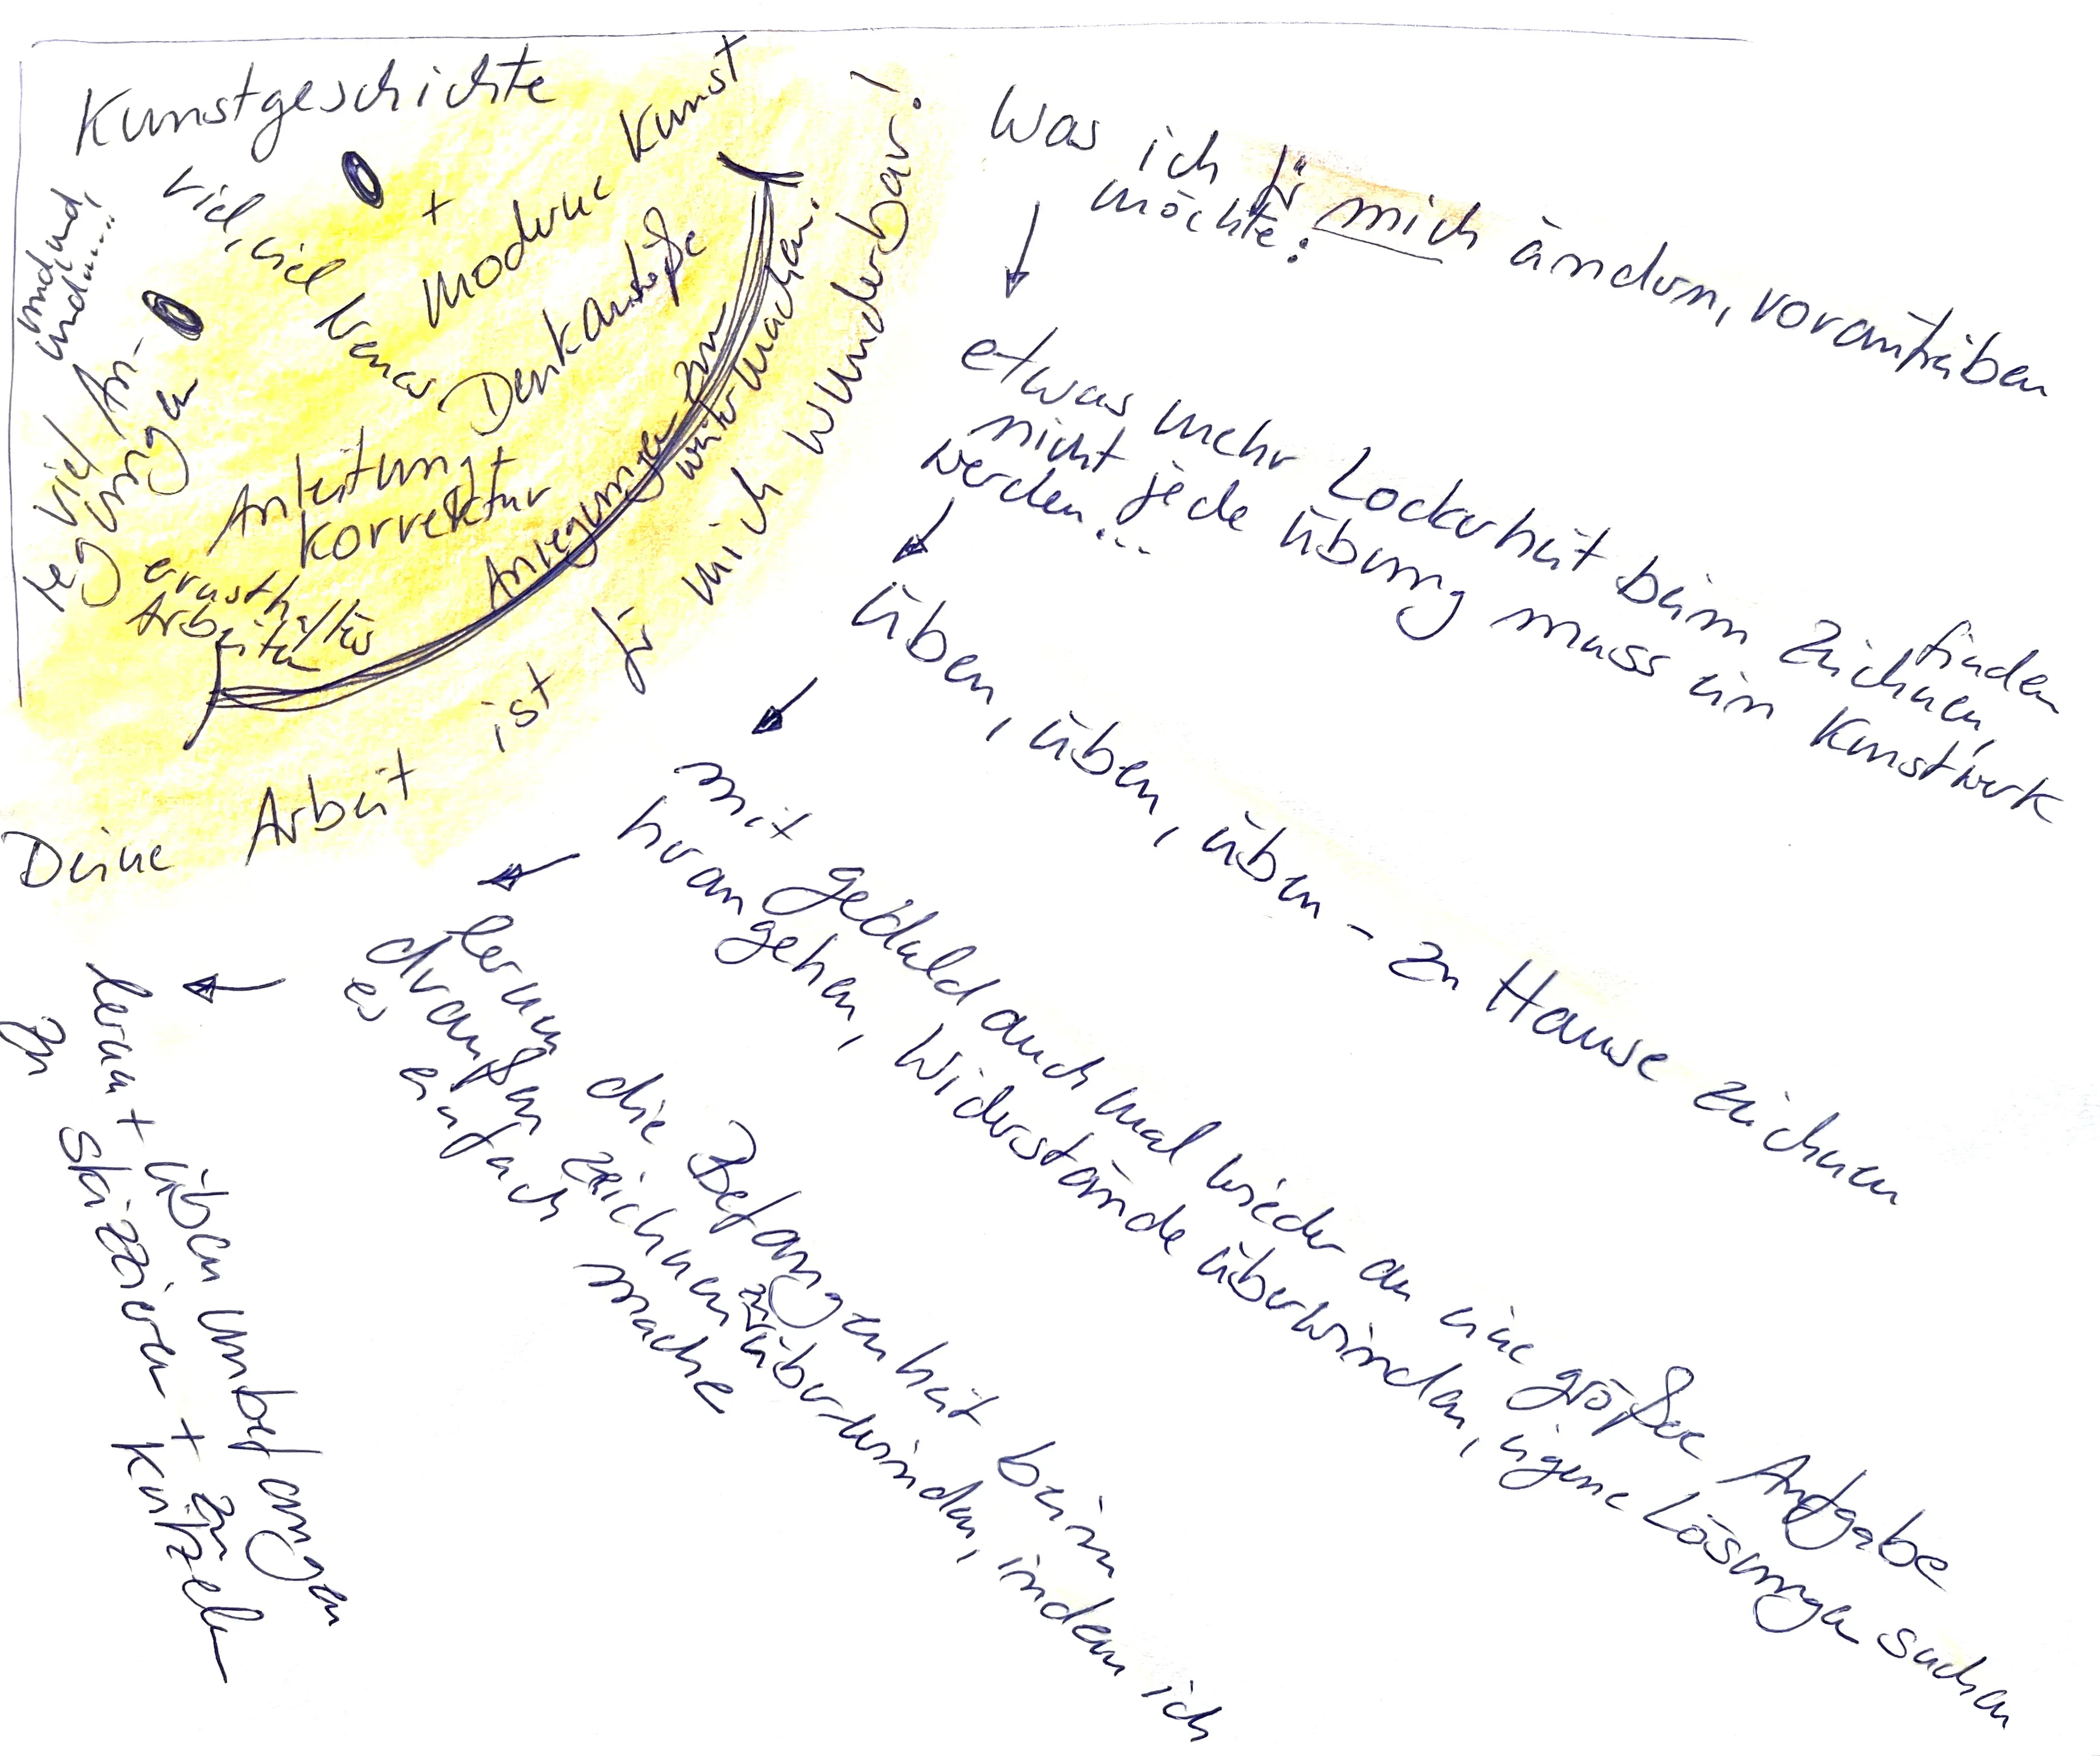 Kunstgeschichte
+
moderne Kunst
viel, viel Neues
Denkanstöße
und und,
und und....
viel An-
regungen
Anleitung +
Korrektur
ernsthaftes
Arbeiten
Anregungen zum
weitermachen.
Deine Arbeit ist für mich wunderbar!
Was ich für mich ändern, vorantreiben
möchte:
etwas mehr Lockerheit beim Zeichnen, finden
nicht jede Übung muss ein Kunstwerk
werden...
üben, üben, üben - zu Hause zeichnen
mit Geduld auch mal wieder an eine größere Aufgabe
herangehen, Widerstände überwinden, eigene Lösungen suchen
lernen die Befangenheit beim
draußen zeichnen zu überwinden, indem ich
es einfach mache
lernen + üben unbefangen
zu skizzieren + zu
kritzeln